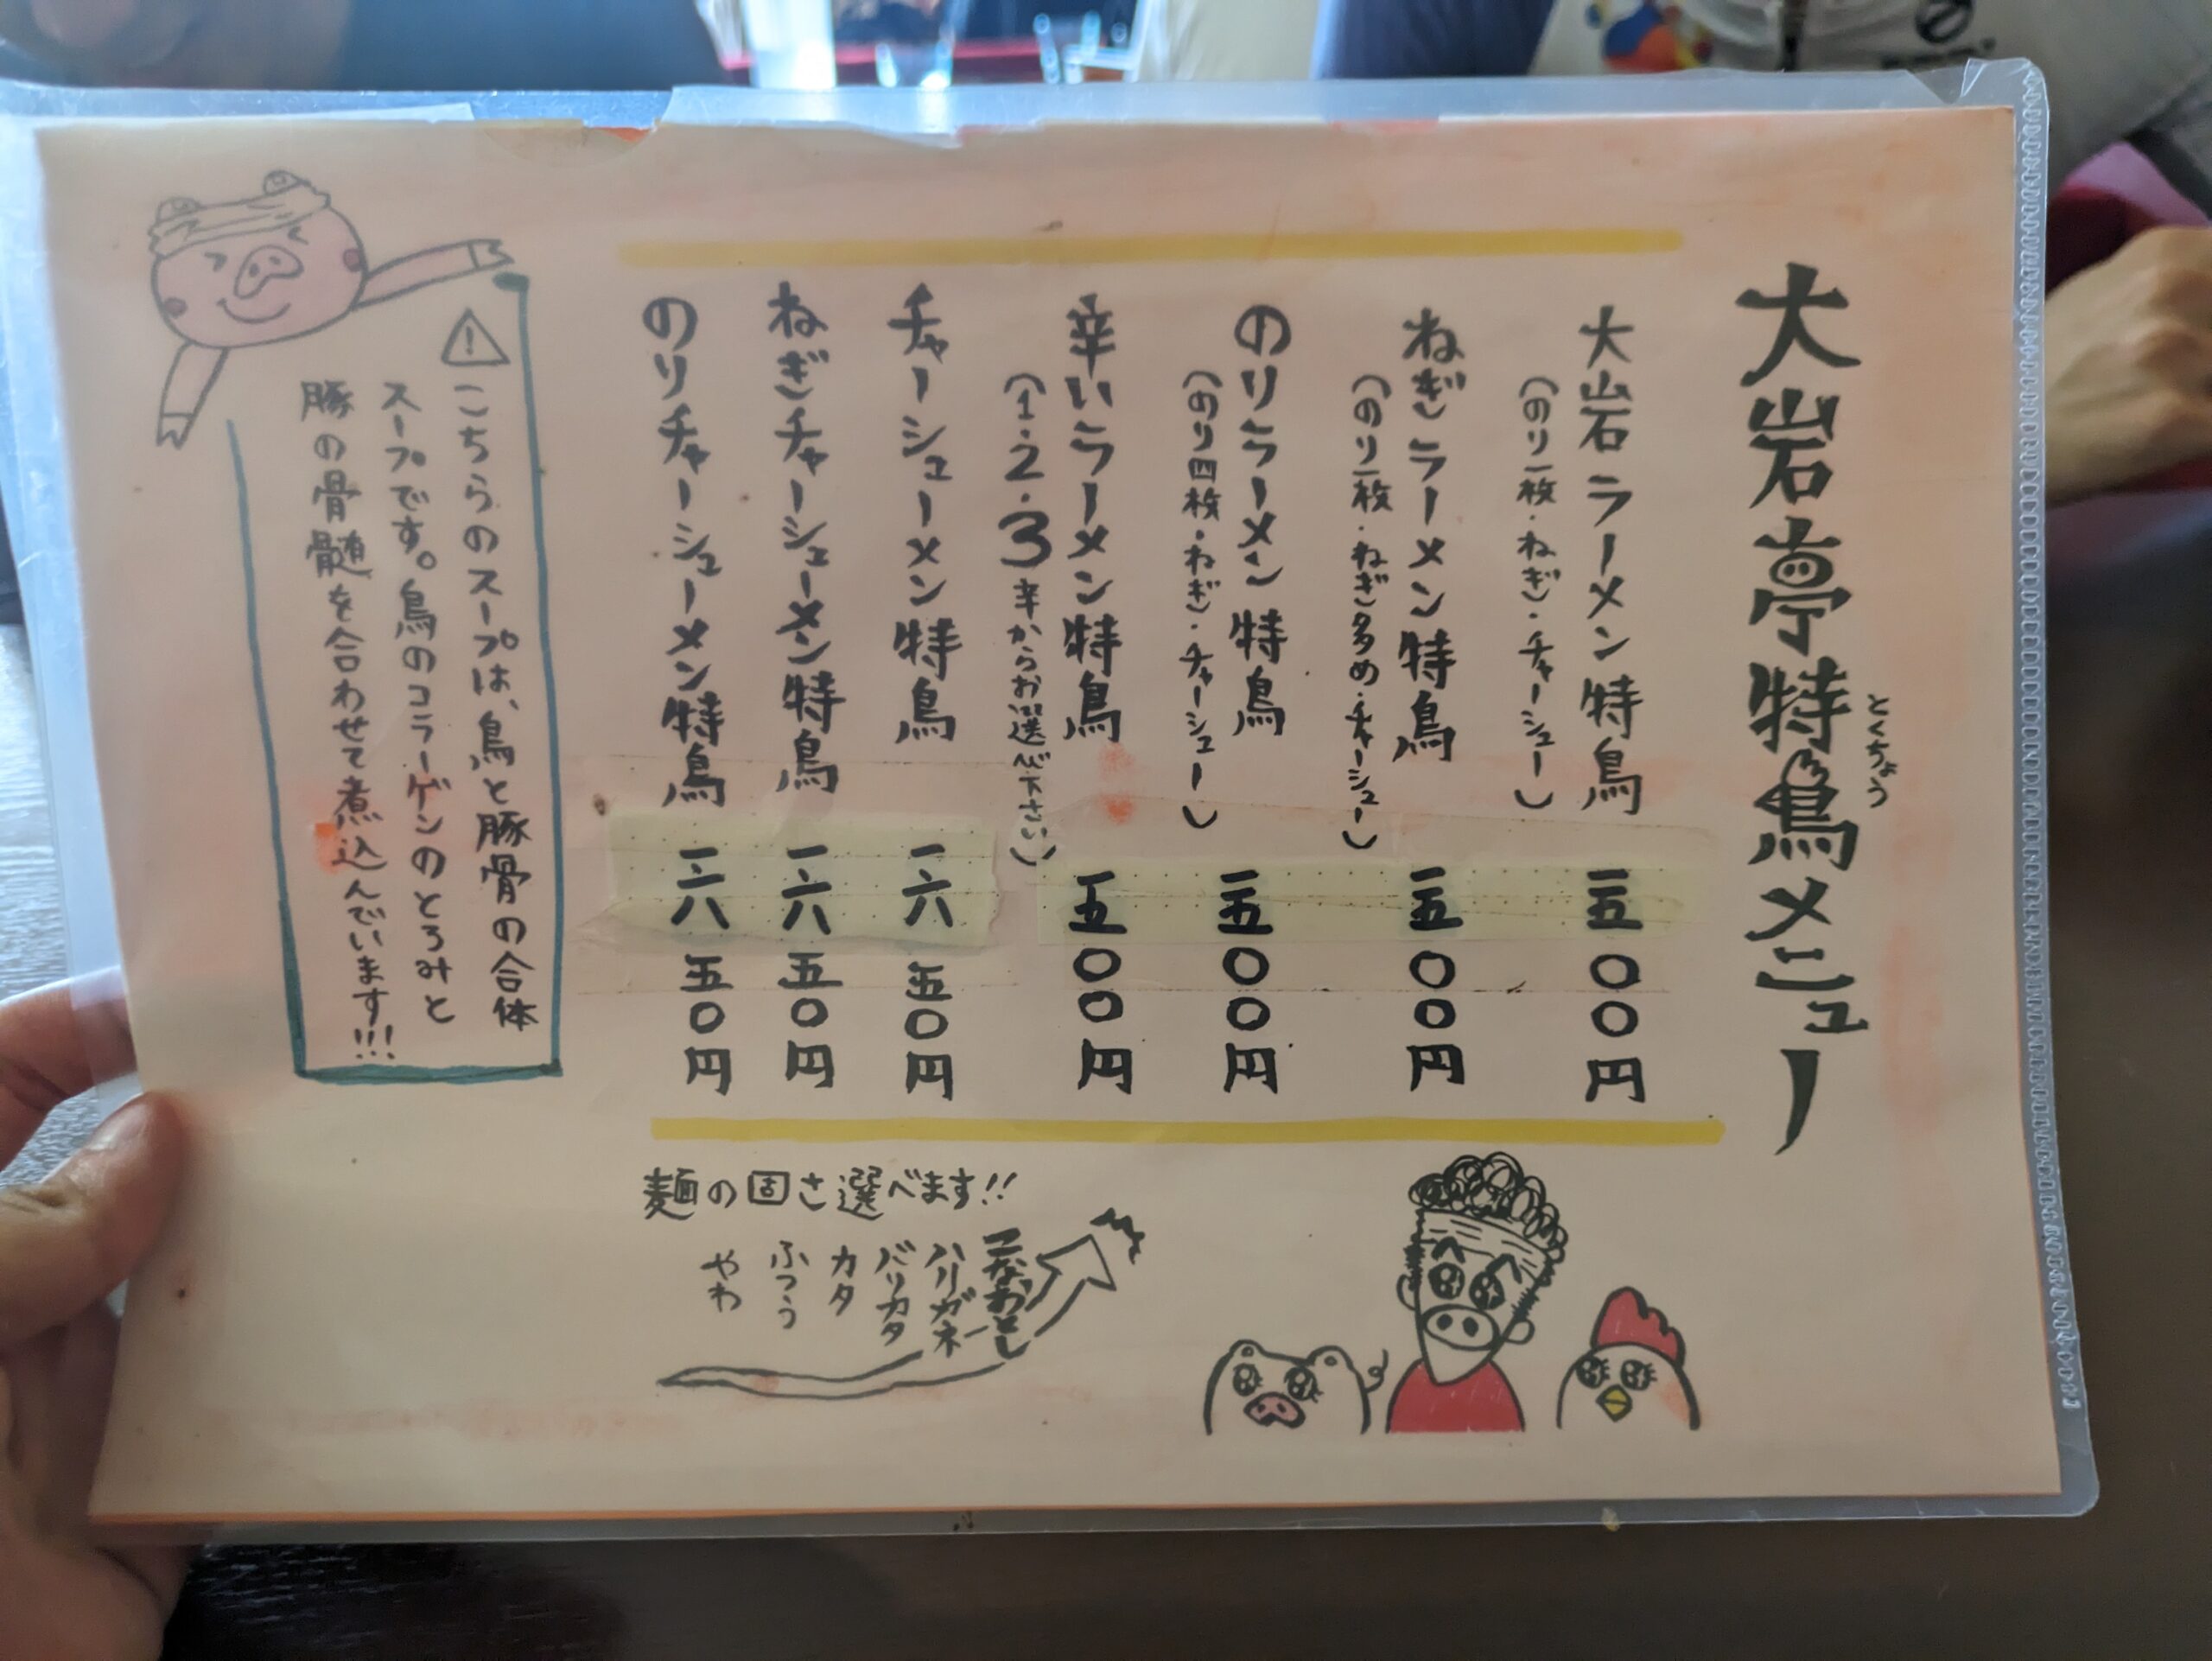 大岩亭特鳥メニュー
とくちょう
大岩ラーメン特鳥 一五〇〇円
(のり一枚・ねぎ・チャーシュー)
ねぎラーメン特鳥 一五〇〇円
(のり一枚・ねぎ多め・チャーシュー)
のりラーメン特鳥 一五〇〇円
(のり四枚・ねぎ・チャーシュー)
辛いラーメン特鳥 一五〇〇円
(1・2・3辛からお選び下さい)
チャーシューメン特鳥 一六五〇円
ねぎチャーシューメン特鳥 一六五〇円
のりチャーシューメン特鳥 一六五〇円
⚠こちらのスープは、鳥と豚骨の合体
スープです。鳥のコラーゲンのとろみと
豚の骨髄を合わせて煮込んでいます!!!
麺の固さ選べます!!
こなおとし
ハリガネ
バリカタ
カタ
ふつう
やわ